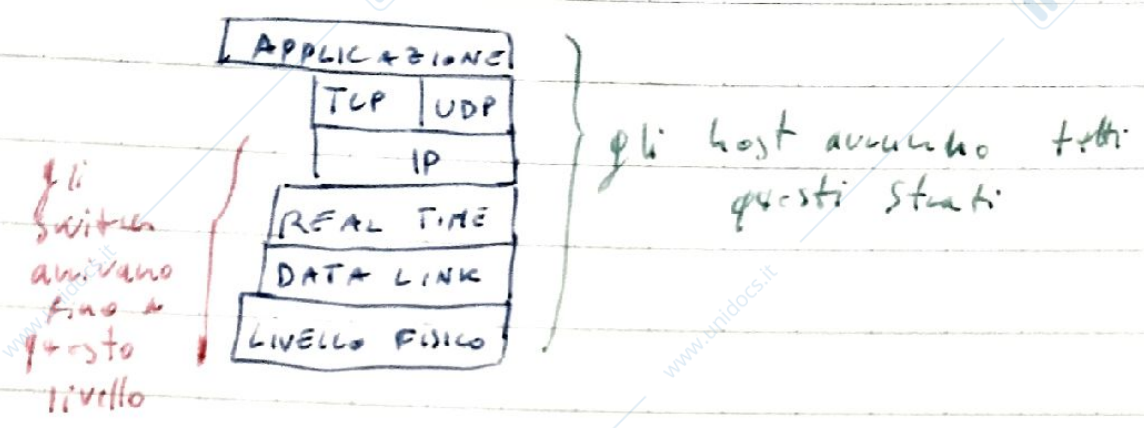 APPLICAZIONE
TCP UDP
IP
REAL TIME
DATA LINK
LIVELLO FISICO
gli
switch
arrivano
fino a
questo
livello
gli host avranno tutti
questi strati
www.unidocs.it
www.unidocs.it